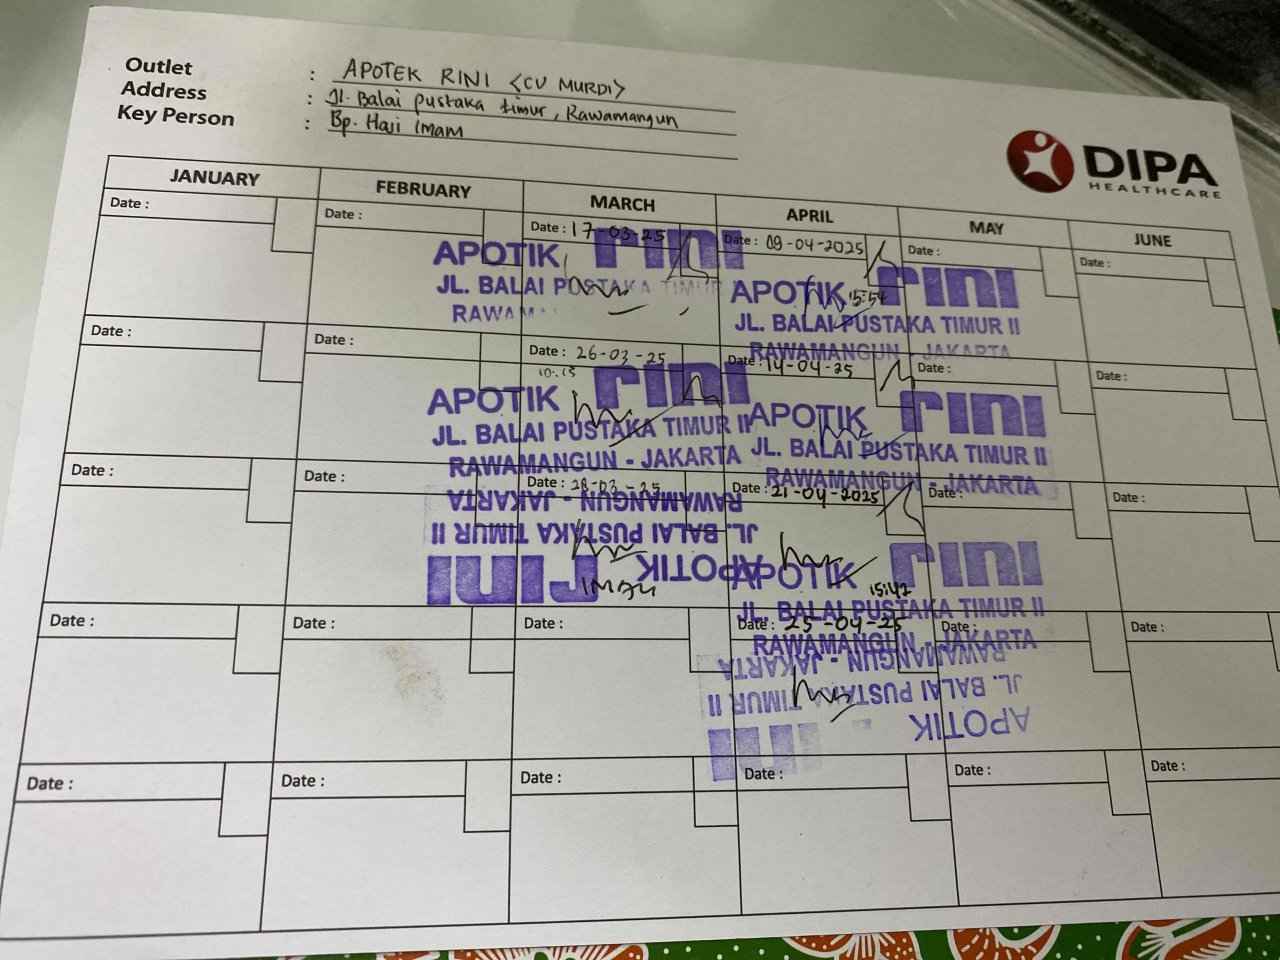 Outlet : APOTEK RINI <CV MURDI>
Address : Jl. Balai pustaka timur, Rawamangun
Key Person : Bp. Haji Imam
DIPA
HEALTHCARE
JANUARY FEBRUARY MARCH APRIL MAY JUNE
Date : Date : Date : 17-03-25 Date : 09-04-2025 Date : Date :
APOTIK rini
JL. BALAI PUSTAKA TIMUR
RAWAM
15:54
APOTIK rini
JL. BALAI PUSTAKA TIMUR II
RAWAMANGUN - JAKARTA
Date : Date : Date : 26-03-25 Date : 14-04-25 Date : Date :
10:15
APOTIK rini
JL. BALAI PUSTAKA TIMUR II
RAWAMANGUN - JAKARTA
APOTIK rini
JL. BALAI PUSTAKA TIMUR II
RAWAMANGUN - JAKARTA
Date : Date : Date : 28-03-25 Date : 21-04-2025 Date : Date :
APOTIK rini
JL. BALAI PUSTAKA TIMUR II
RAWAMANGUN - JAKARTA
15:42
APOTIK rini
JL. BALAI PUSTAKA TIMUR II
RAWAMANGUN - JAKARTA
Date : Date : Date : Date : 25-04-25 Date : Date :
APOTIK
JL. BALAI PUSTAKA TIMUR II
RAWAMANGUN - JAKARTA
Date : Date : Date : Date : Date : Date :